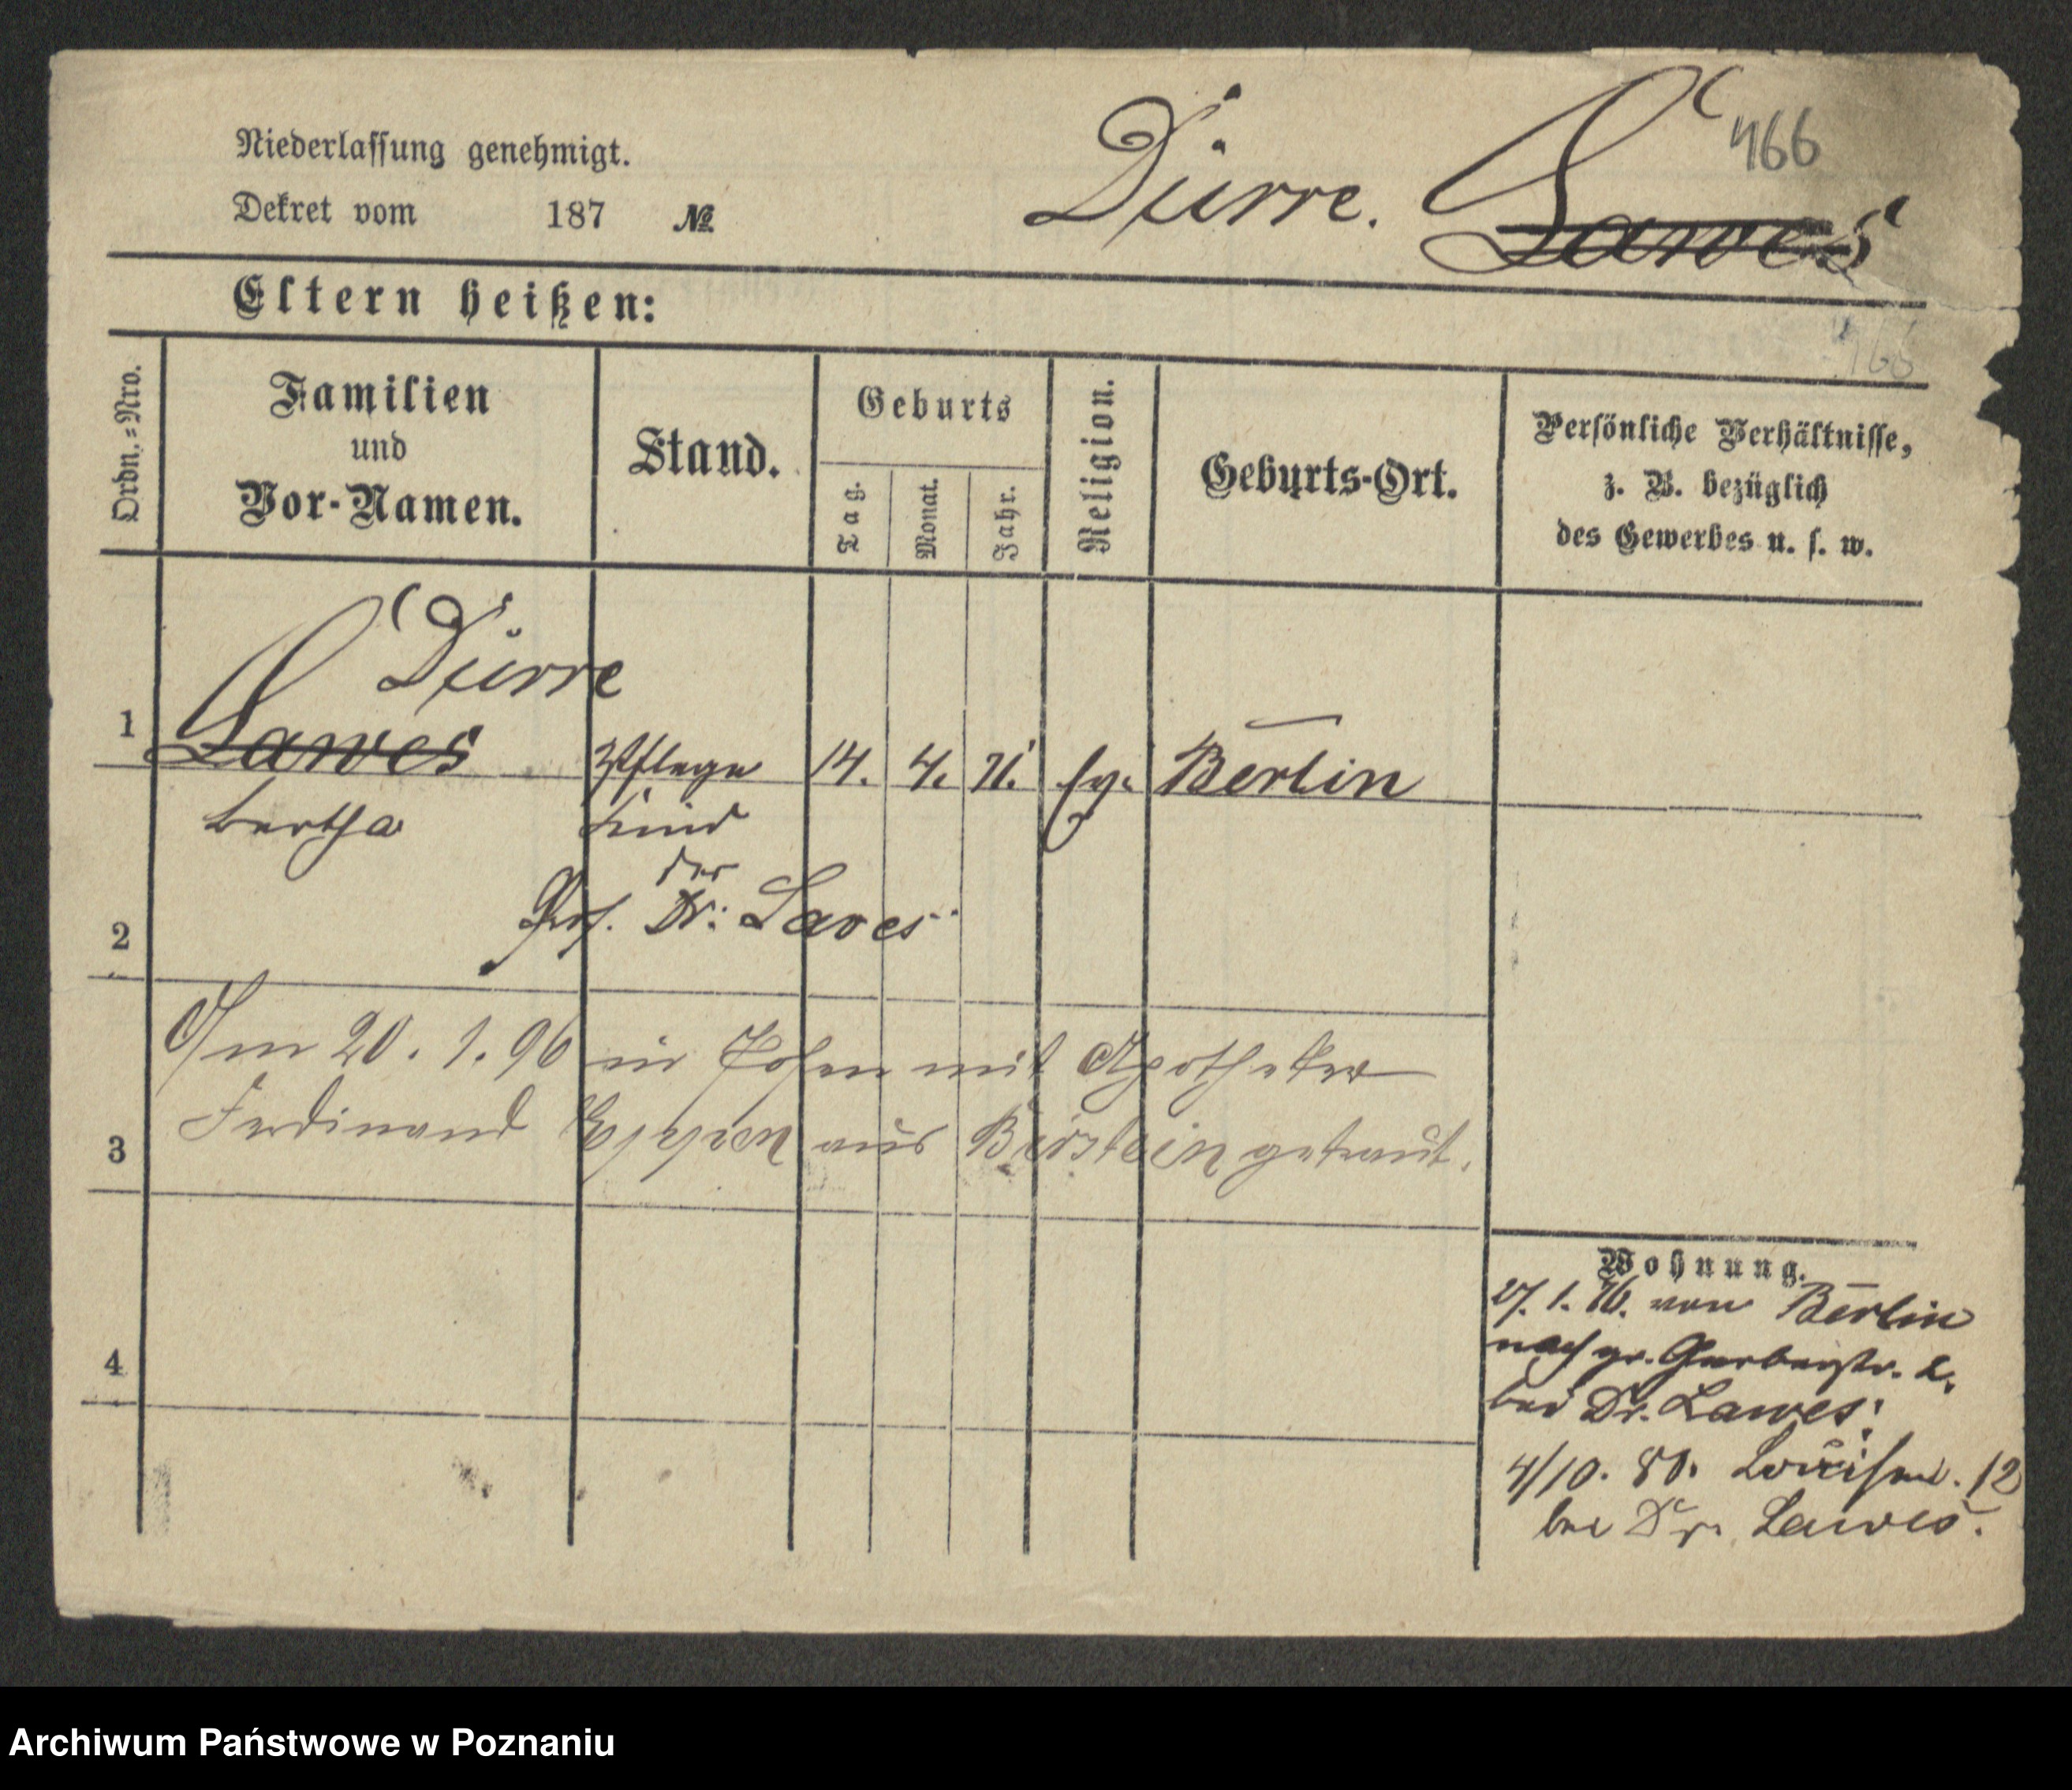 466
Niederlassung genehmigt.
Dürre. Lawes
Dekret vom 187 №
Eltern heißen:
466
Ordn.=Nro.
Familien
und
Vor-Namen.
Stand.
Geburts
Tag.
Monat.
Jahr.
Religion.
Geburts-Ort.
Persönliche Verhältnisse,
z. B. bezüglich
des Gewerbes u. s. w.
Dürre
1 Lawes Pflege 14. 4. 71. Ev. Berlin
Bertha Kind
des
2 Prof. Dr. Laves
Am 20. 1. 96 in Posen mit Apotheker
3 Ferdinand aus getraut.
4
Wohnung.
27. 1. 76. von Berlin
nach gr. Gerberstr. 2.
bei Dr. Lawes.
4/10. 80. Louisen. 12
bei Dr. Lawes.
Archiwum Państwowe w Poznaniu